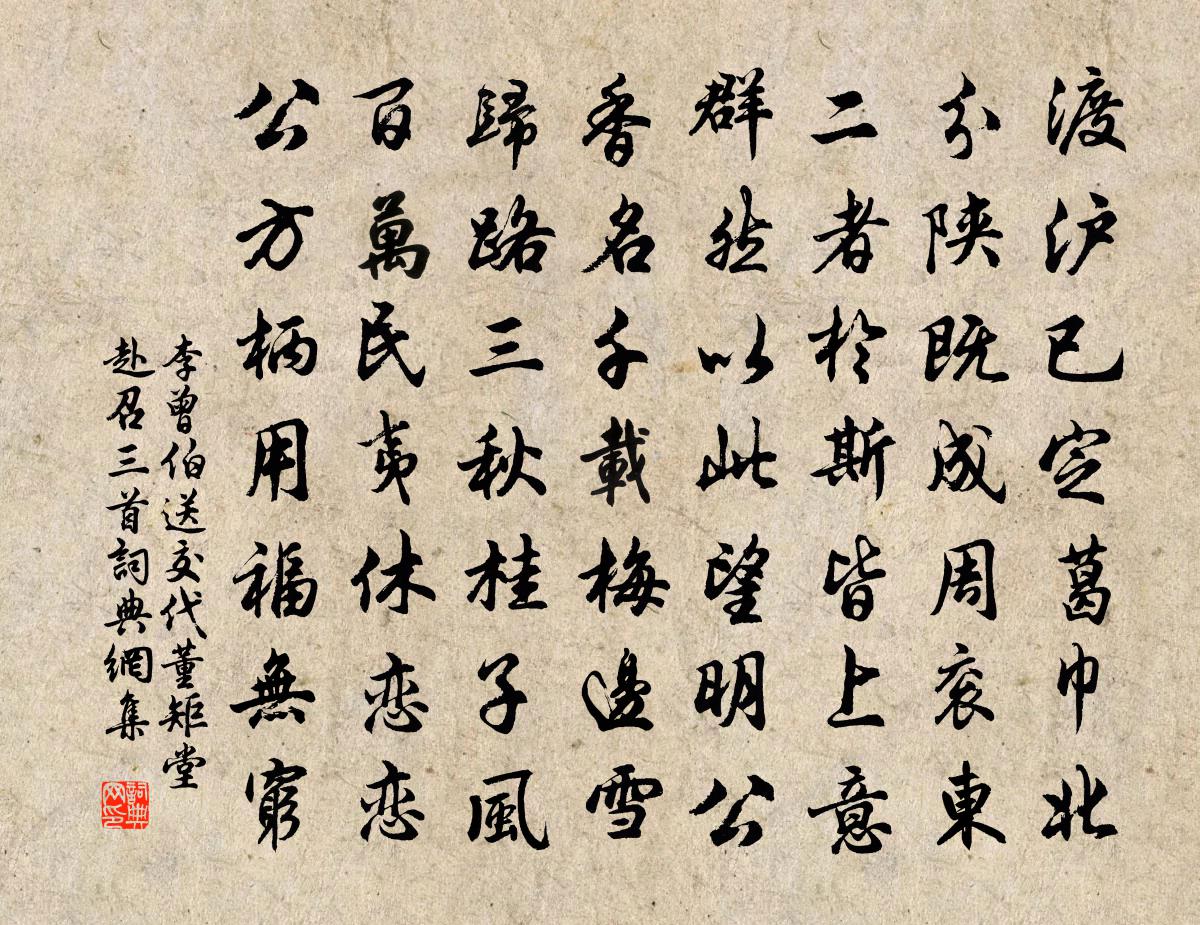 渡沪已定葛巾北
分陜既成周衮東
二者於斯皆上意
群然以此望明公
香名千載梅邊雪
歸路三秋桂子風
百萬民夷休恋恋
公方柄用福無窮
李曾伯送交代董矩堂
赴召三首詞典網集
詞典网印